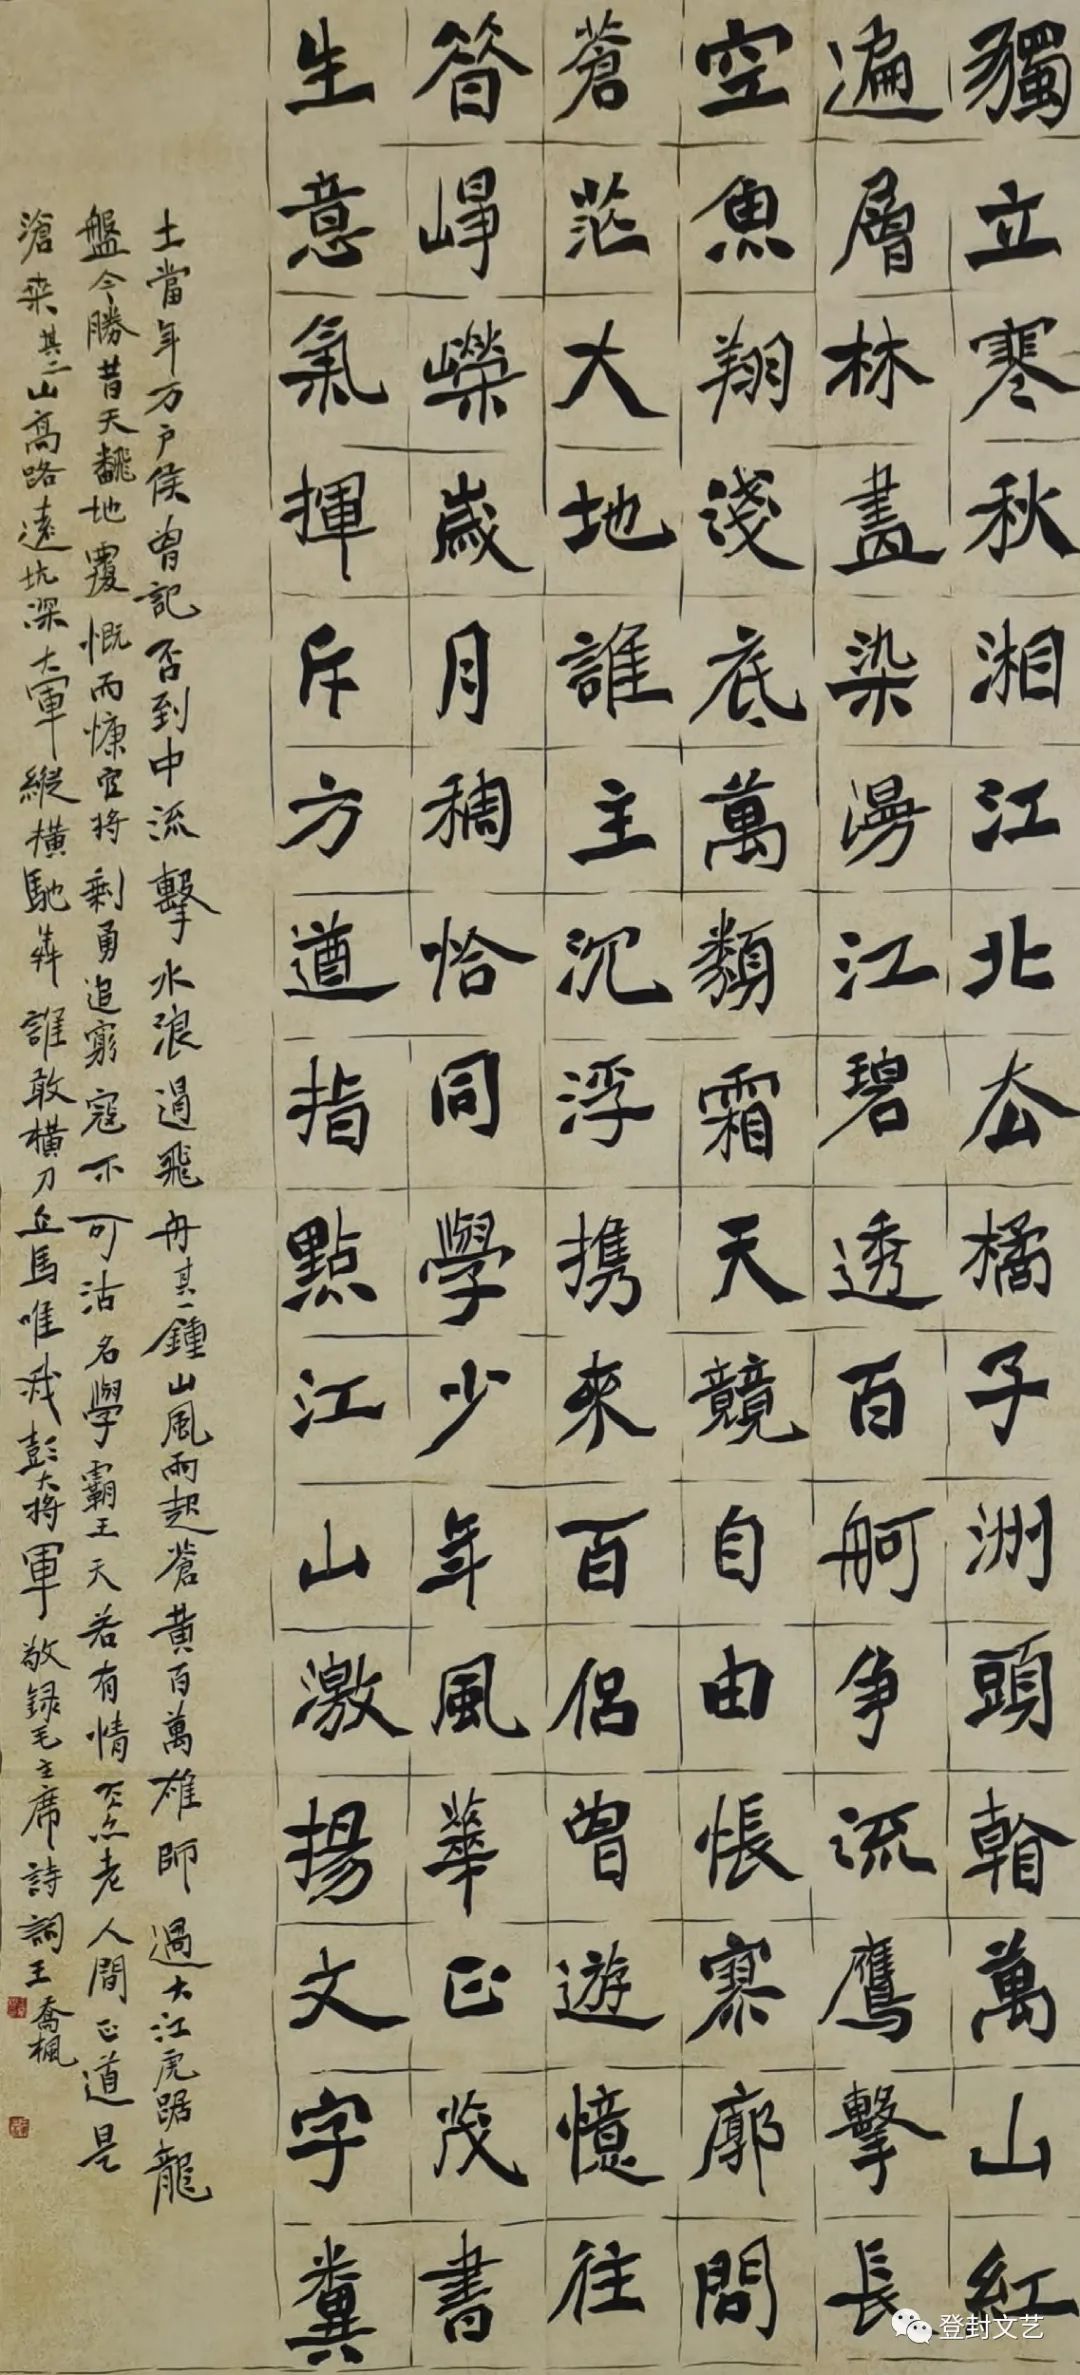 獨立寒秋湘江北厺橘子洲頭看萬山紅
遍層林盡染漫江碧透百舸争流鷹擊長
空魚翔淺底萬類霜天競自由悵寥廓問
蒼茫大地誰主沉浮携來百侣曾遊憶往
昔崢嶸歲月稠恰同學少年風華正茂書
生意氣揮斥方遒指點江山激揚文字糞
土當年万户侯曾記否到中流擊水浪遏飛舟其一鍾山風雨起蒼黄百萬雄師過大江虎踞龍
盤今勝昔天翻地覆慨而慷宜將剩勇追窮寇不可沽名學霸王天若有情天亦老人間正道是
滄桒其二山高路遠坑深大軍縱横馳犇誰敢横刀立馬唯我彭大將軍敬録毛主席詩詞王喬楓
登封文艺